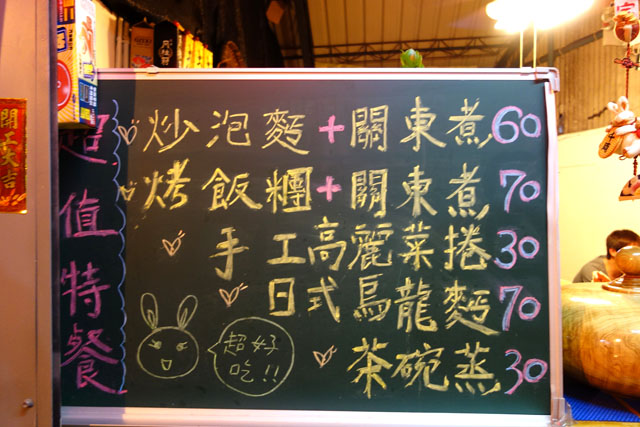 超值特餐
炒泡麵+關東煮60
烤飯糰+關東煮70
手工高麗菜捲30
日式烏龍麵70
茶碗蒸30
超好
吃!!
開工大吉